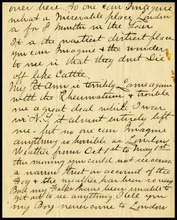 over here. No one can Imagine
what a Miserable place London
is for 8 Months in the Year
It is the nastiest dirtiest place
you can Imagine & the wonder
to me is that they dont Die
off like Cattle.
My left Arm is terribly Lame again
with the Rheumatism & troubles
me a great deal what I was
in N.Y. it almost entirely left
me, but no one can Imagine
anything so horrible as London
Weather from Oct 1st to May 1st
the morning you could not see across
a narrow Street on account of the
Fog & the weather has been so
Bad my Father has been unable to
get out to see anything. I tell you
my Boy never come to London